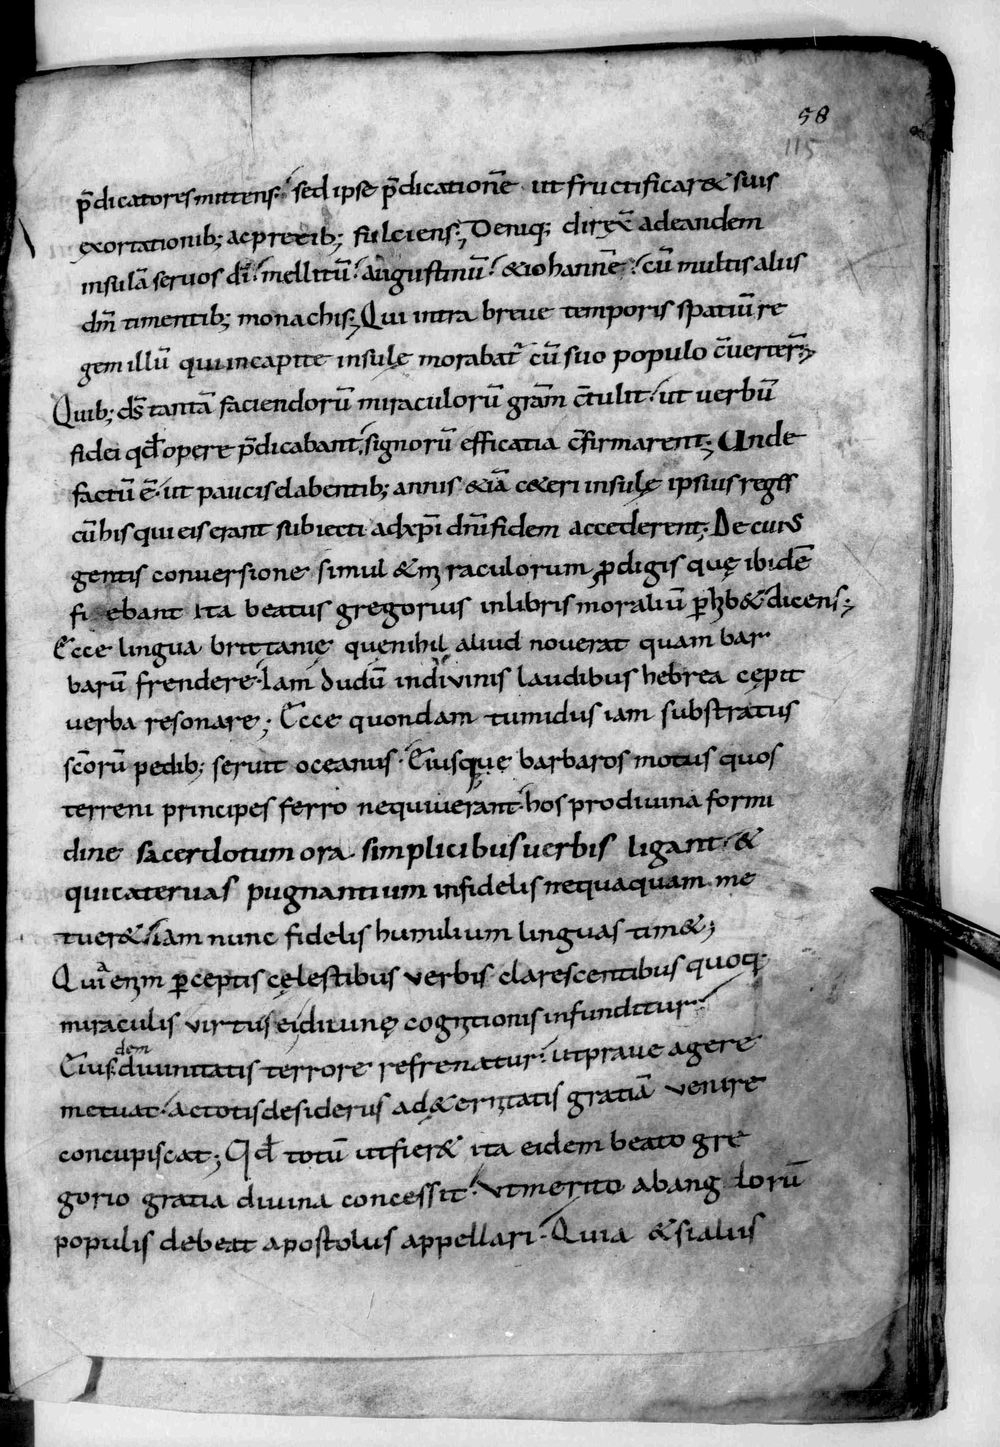 58
115
p̄dicatores mittens. sed ipse p̄dicationē ut fructificar& suis
exortationib; ac precib; fulciens; Deniq; direx̄ ad eandem
insulā seruos dī. mellitū. augustinū. & iohannē. cū multis aliis
dm̄ timentib; monachis; Qui intra breue temporis spatiū re
gem illū qui in capite insulę morabat᷑ cū suo populo c̄uerter̄;
Quib; ds̄ tantā faciendorū miraculorū grām c̄tulit. ut verbū
fidei qd̄ opere p̄dicabant. signorū efficatia c̄firmarent; Unde
factū ē. ut paucis labentib; annis &iā c&eri insulę ipsius reges
cū his qui eis erant subiecti ad xp̄i dn̄i fidem accederent; De cuius
gentis conuersione simul & miraculorum ꝓdigis quę ibidē
fiebant ita beatus gregorius in libris moraliū ꝑhib& dicens;
Ecce lingua brittanię quę nihil aliud nouerat quam bar
barū frendere. Iam dudū in divinis laudibus hebrea cępit
uerba resonare; Ecce quondam tumidus iam substratus
sc̄orū pedib; seruit oceanus. Eiusque barbaros motus quos
terreni principes ferro nequiuerant. hos pro diuina formi
dine sacerdotum ora simplicibus uerbis ligant. &
qui cateruas pugnantium infidelis nequaquam me
tuer& iam nunc fidelis humilium linguas tim&;
Quia enim ꝑceptis cęlestibus verbis clarescentibus quoq;
miraculis virtus ei diuinę cognitionis infunditur.
Eiusdem diuinitatis terrore refrenatur. ut praue agere
metuat. ac totis desideriis ad &ernitatis gratiā venire
concupiscat; Qd̄ totū ut fier& ita eidem beato gre
gorio gratia diuina concessit. Ut merito ab anglorū
populis debeat apostolus appellari. Quia & si aliis